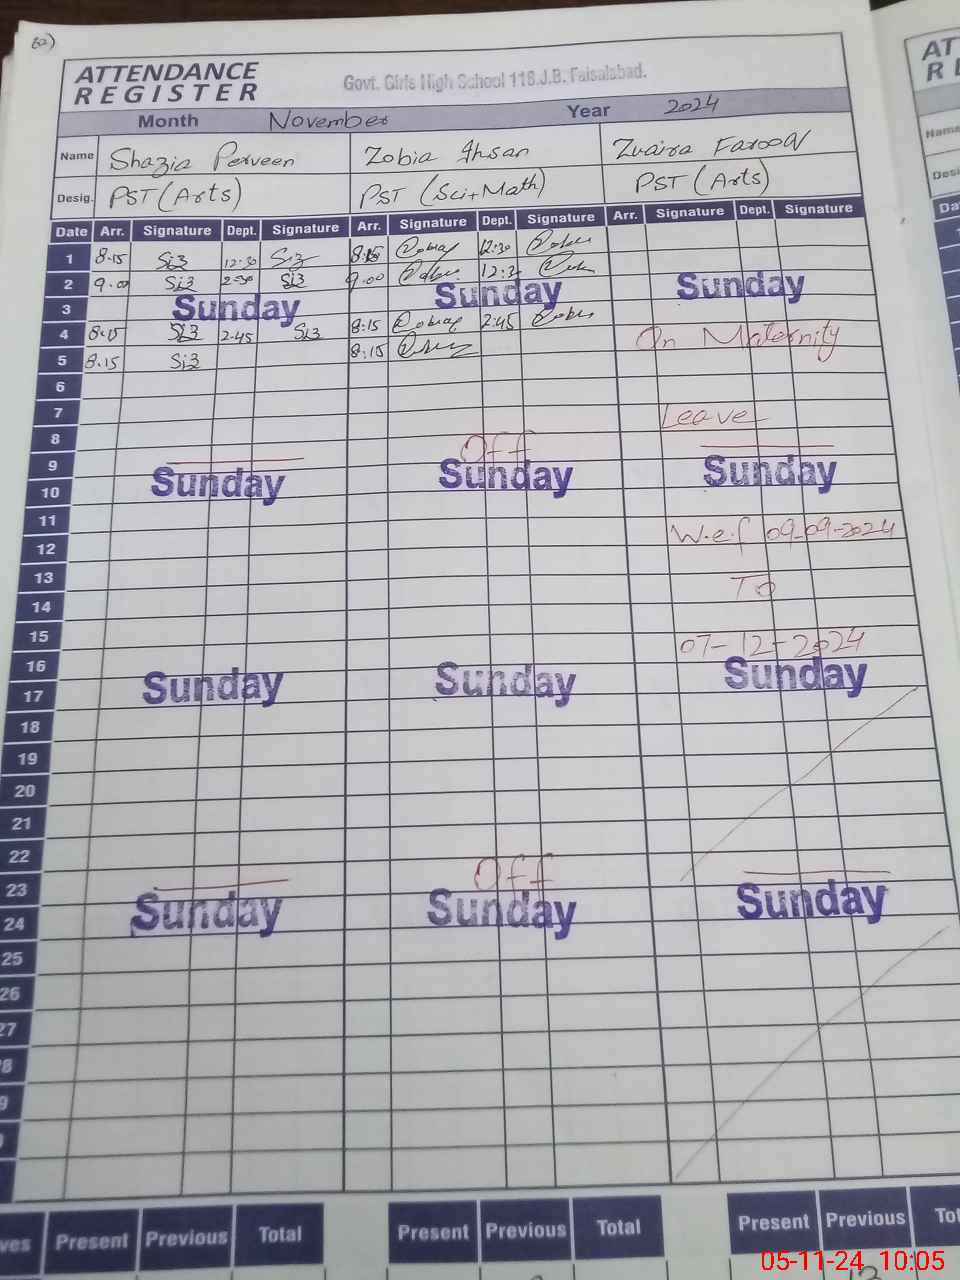 ATTENDANCE
REGISTER
Govt. Girls High School 118.J.B. Faisalabad.
Month November Year 2024
Name Shazia Perveen Zobia Ihsan Zuaira Farooq
Desig. PST (Arts) PST (Sci+Math) PST (Arts)
Date Arr. Signature Dept. Signature Arr. Signature Dept. Signature Arr. Signature Dept. Signature
1 8.15 12:30 8:15 12:30
2 9.00 9.00
Sunday Sunday Sunday
3
4 8.15 2.45 8:15 2:45
On Maternity
5 8.15 8:15
6
7 Leave
8 Off
9 Sunday Sunday Sunday
10
11 W.e.f 09-09-2024
12
13 To
14
15 07-12-2024
16 Sunday Sunday Sunday
17
18
19
20
21
22 Off
23 Sunday Sunday Sunday
24
25
26
27
8
9
ves Present Previous Total Present Previous Total Present Previous Tot
05-11-24 10:05
AT
RE
Name
Desi
Da